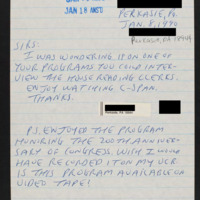 JAN 18 RECD
PERKASIE, PA.
JAN. 8, 1990
PA 18944
SIRS:
I WAS WONDERING IF ON ONE OF
YOUR PROGRAMS YOU COULD INTER-
VIEW THE HOUSE READING CLERKS.
ENJOY WATCHING C-SPAN.
THANKS.
P.S. ENJOYED THE PROGRAM
HONORING THE 200TH ANNIVER-
SARY OF CONGRESS. WISH I WOULD
HAVE RECORDED IT ON MY VCR.
IS THIS PROGRAM AVAILABLE ON
VIDEO TAPE?